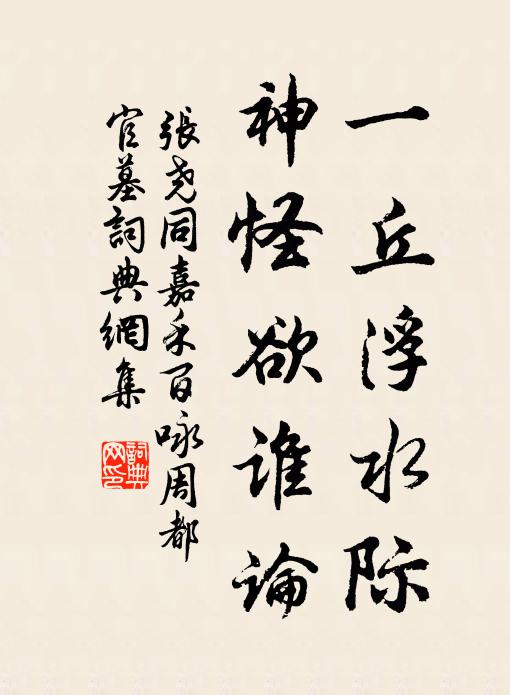 一丘浮水际
神怪欲谁論
張尧同嘉禾百咏周都
官墓詞典網集
詞典网印